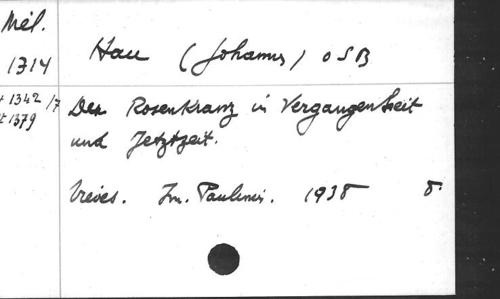 Mél.
1314
Hau (Johannes) OSB
+ 1342/7
+ 1379
Der Rosenkranz in Vergangenheit
und Jetztzeit.
Trèves. Im. Paulinus. 1938 8.